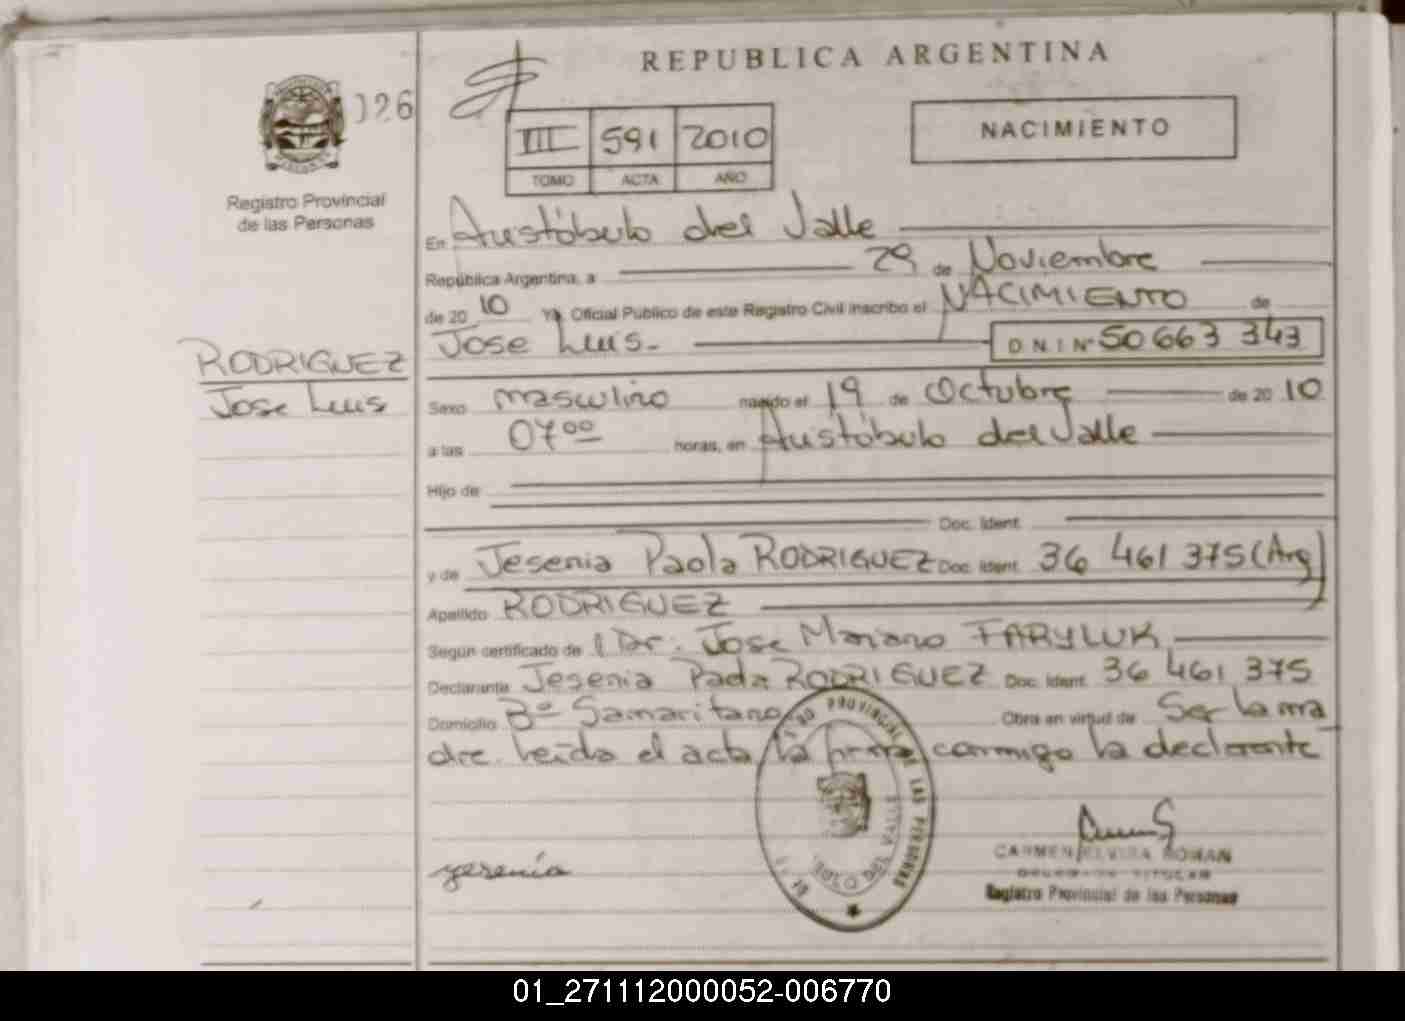 REPUBLICA ARGENTINA
126
III 591 2010
TOMO ACTA AÑO
NACIMIENTO
Registro Provincial
de las Personas
En Aristóbulo del Valle
República Argentina, a 29 de Noviembre
de 20 10 Yo, Oficial Público de este Registro Civil inscribo el NACIMIENTO de
Jose Luis.- D N I Nº 50 663 343
RODRIGUEZ
Jose Luis
Sexo masculino nacido el 19 de Octubre de 20 10
a las 07⁰⁰ horas, en Aristóbulo del Valle
Hijo de
Doc. Ident.
y de Jesenia Paola RODRIGUEZ Doc. Ident. 36 461 375 (Arg)
Apellido RODRIGUEZ
Según certificado de Dr. Jose Mariano FARYLUK
Declarante Jesenia Paola RODRIGUEZ Doc. Ident. 36 461 375
Domicilio Bº Samaritano Obra en virtud de Ser la ma
dre. Leída el acta, la firma conmigo la declarante
REGISTRO PROVINCIAL DE LAS PERSONAS
BULO DEL VALLE
yesenia
CARMEN ELVIRA ROMAN
TITULAR
Registro Provincial de las Personas
01_271112000052-006770